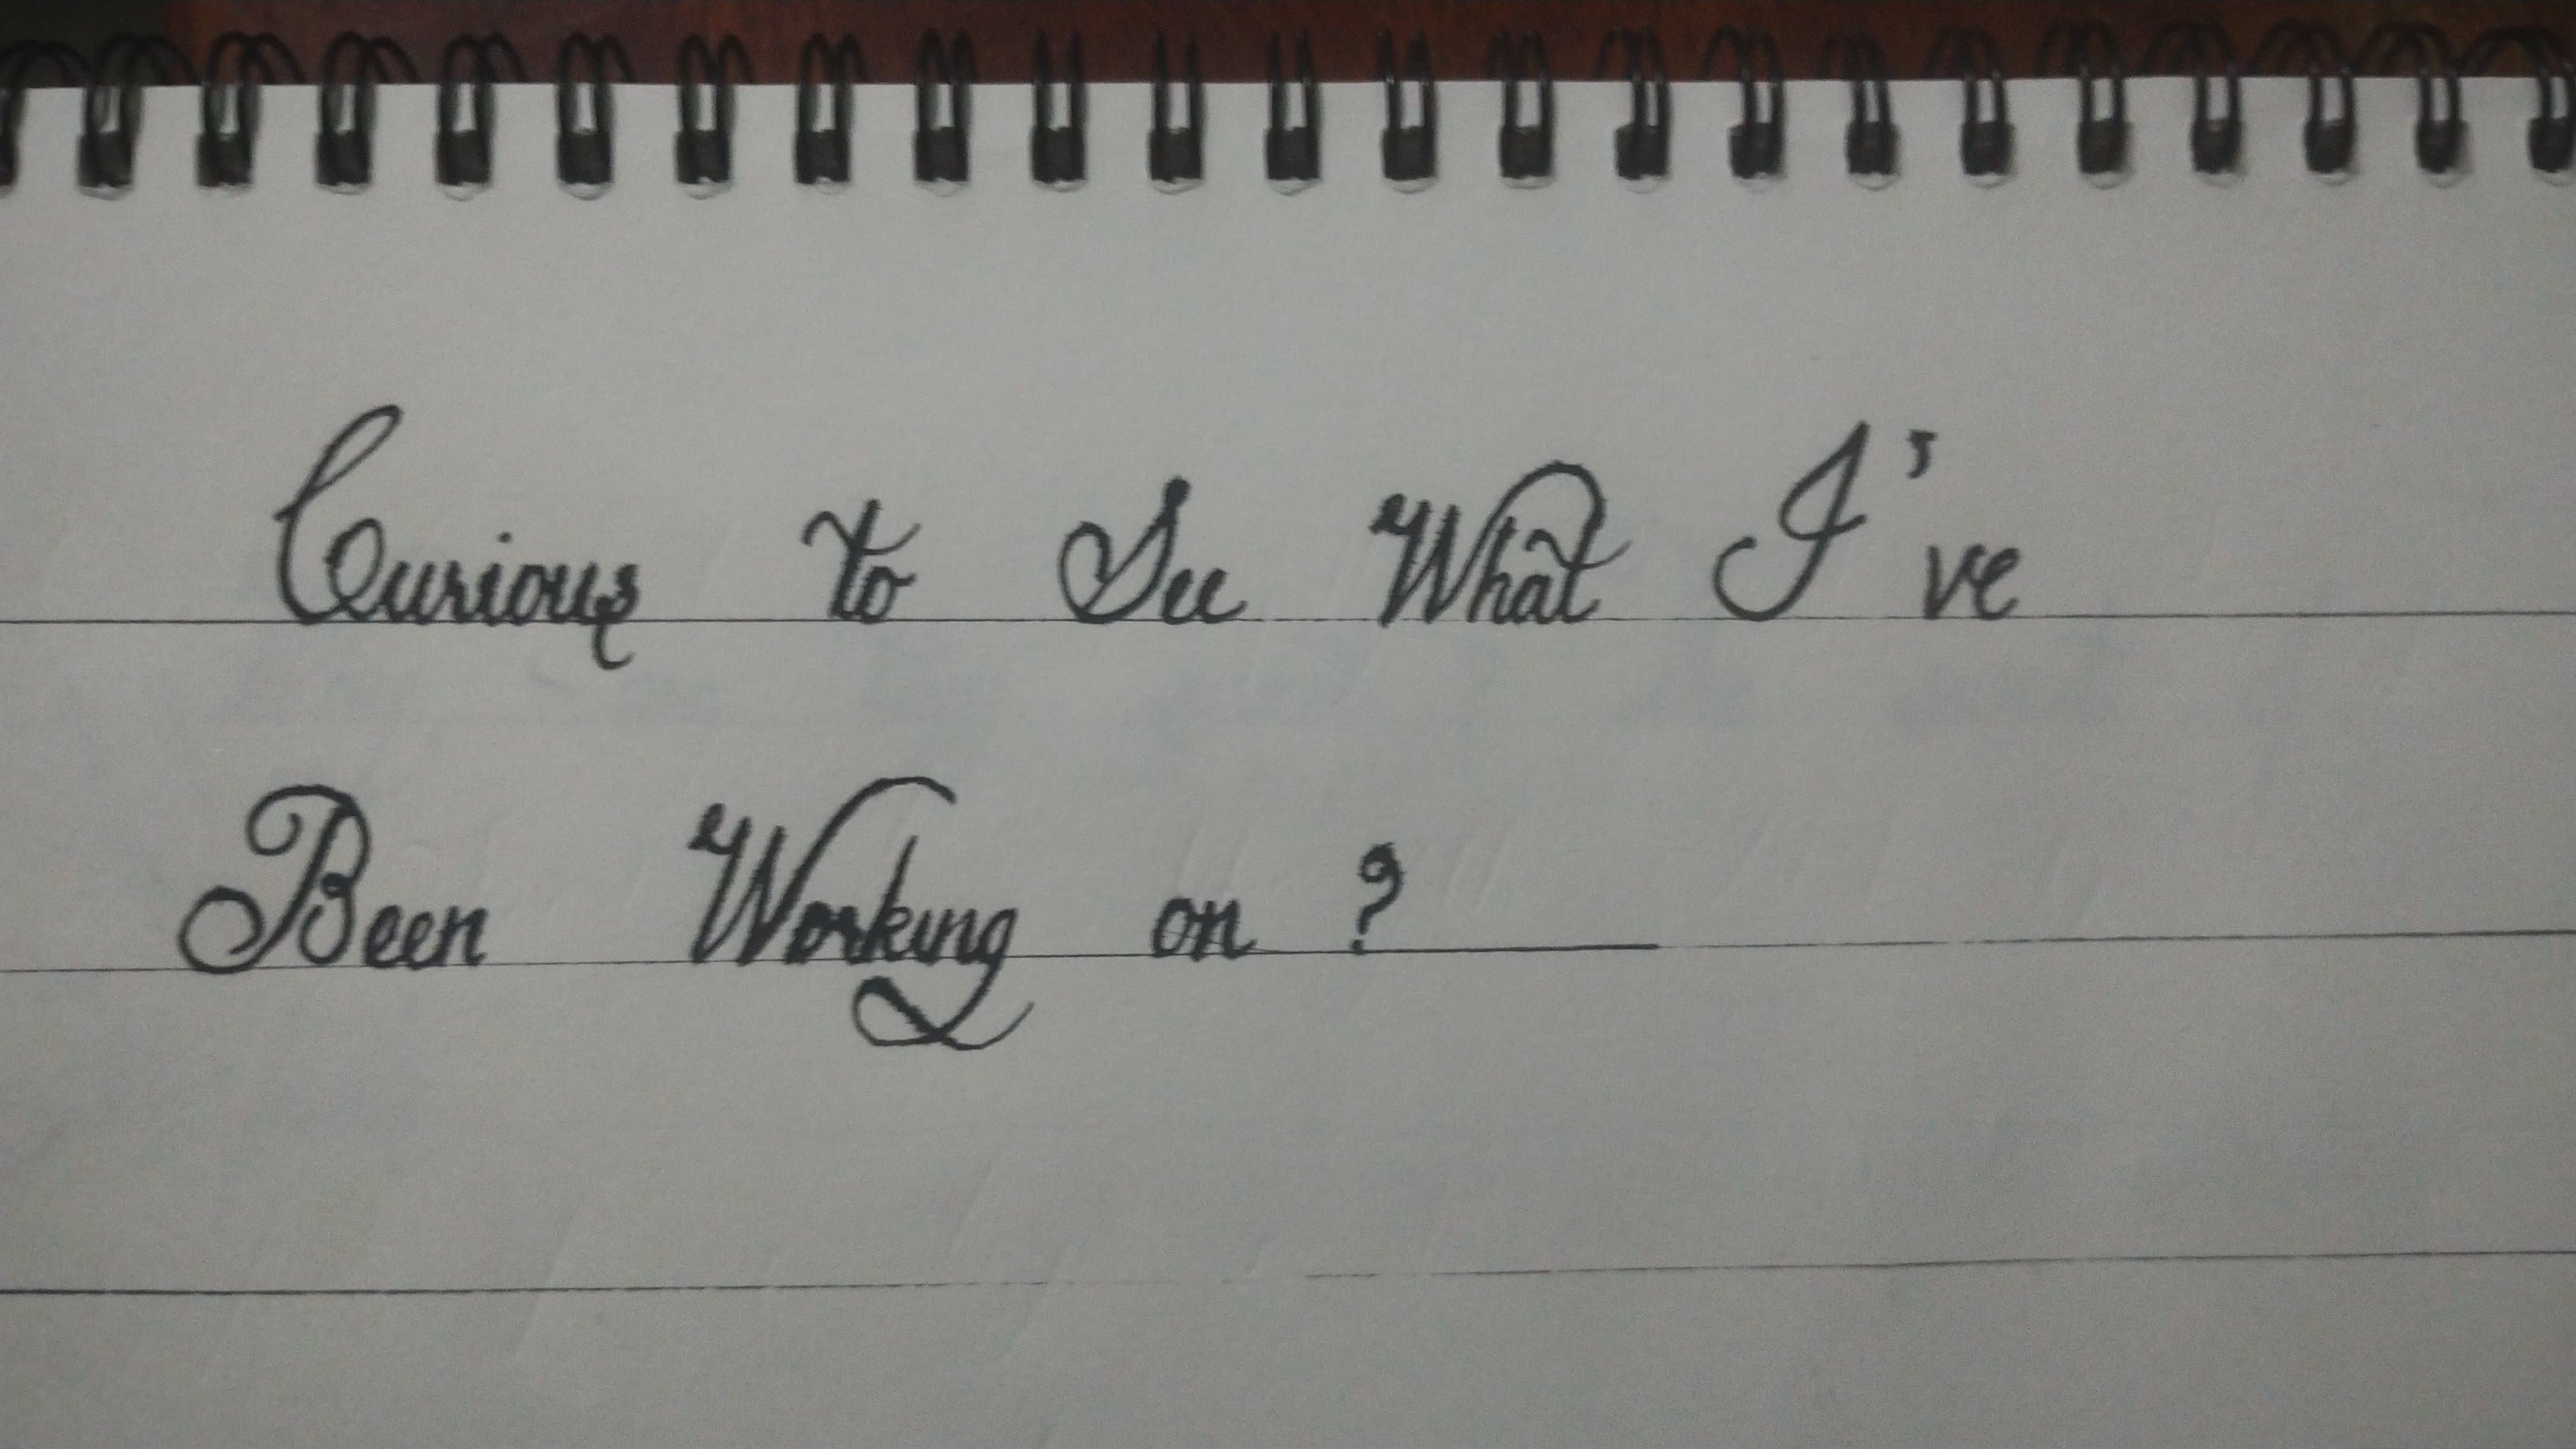 Curious to See What I've
Been Working on ?